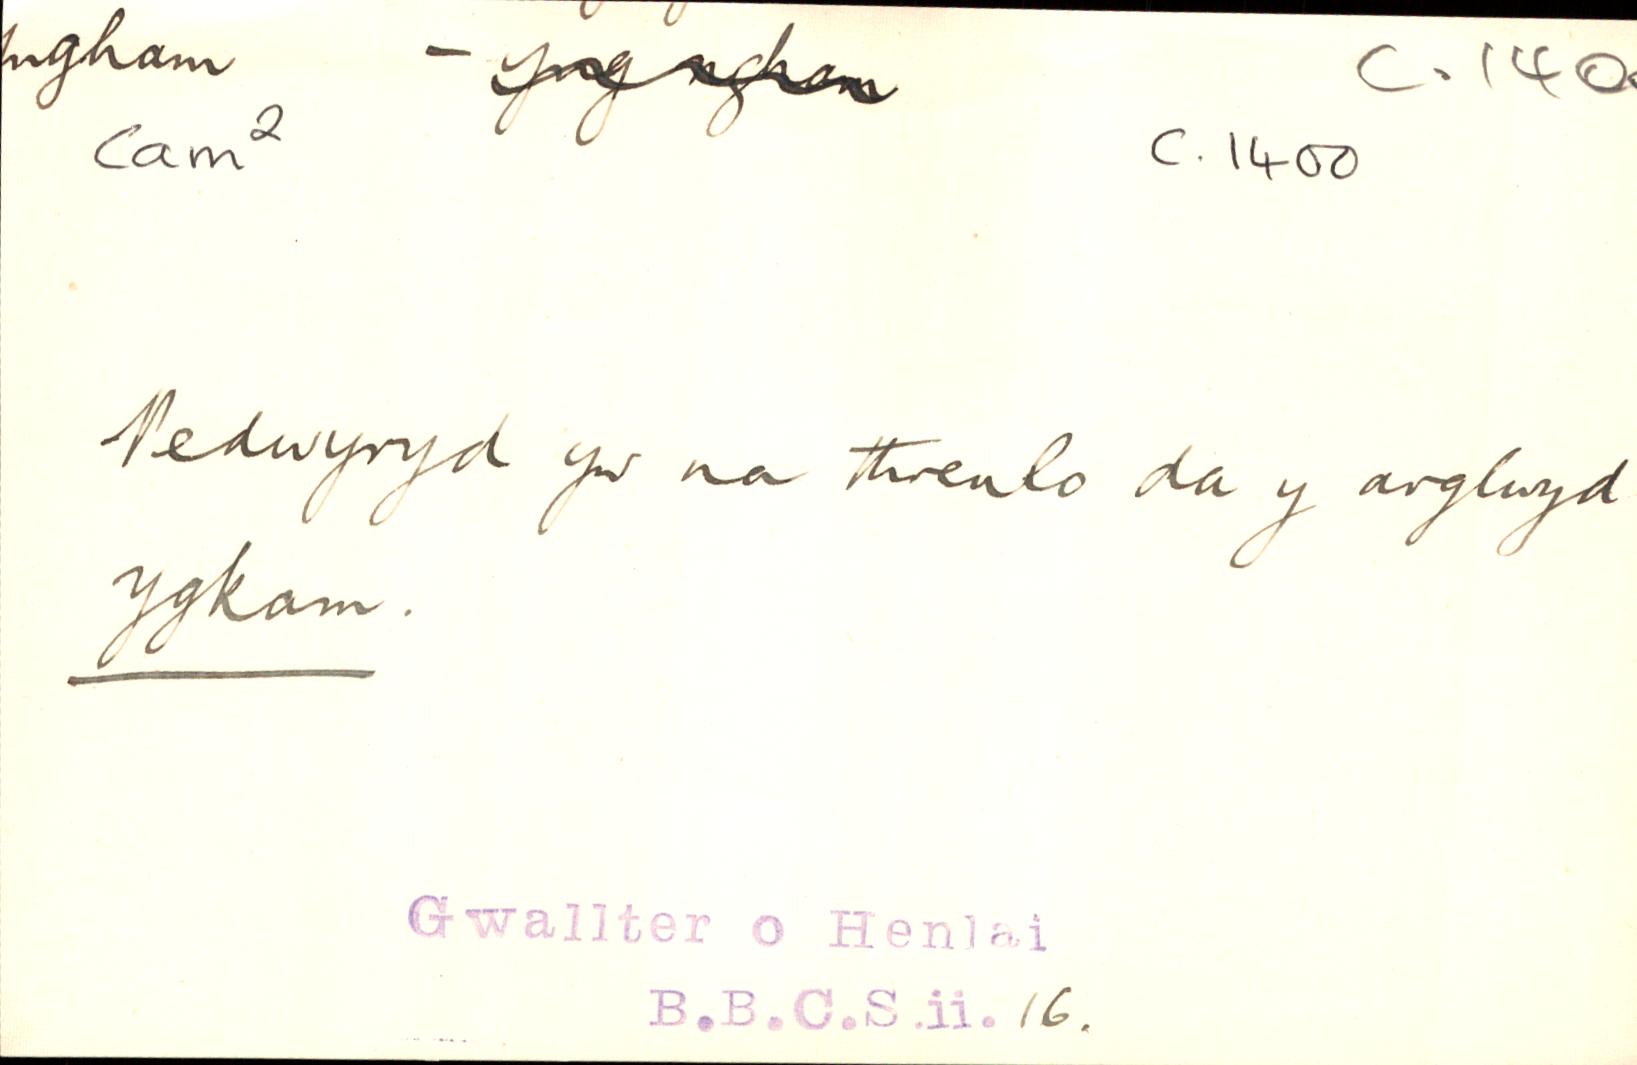 ngham - yng ngham c. 140
Cam² c. 1400
Pedwyryd yw na threulo da y arglwyd
ygkam.
Gwallter o Henlai
B.B.C.S.ii. 16.